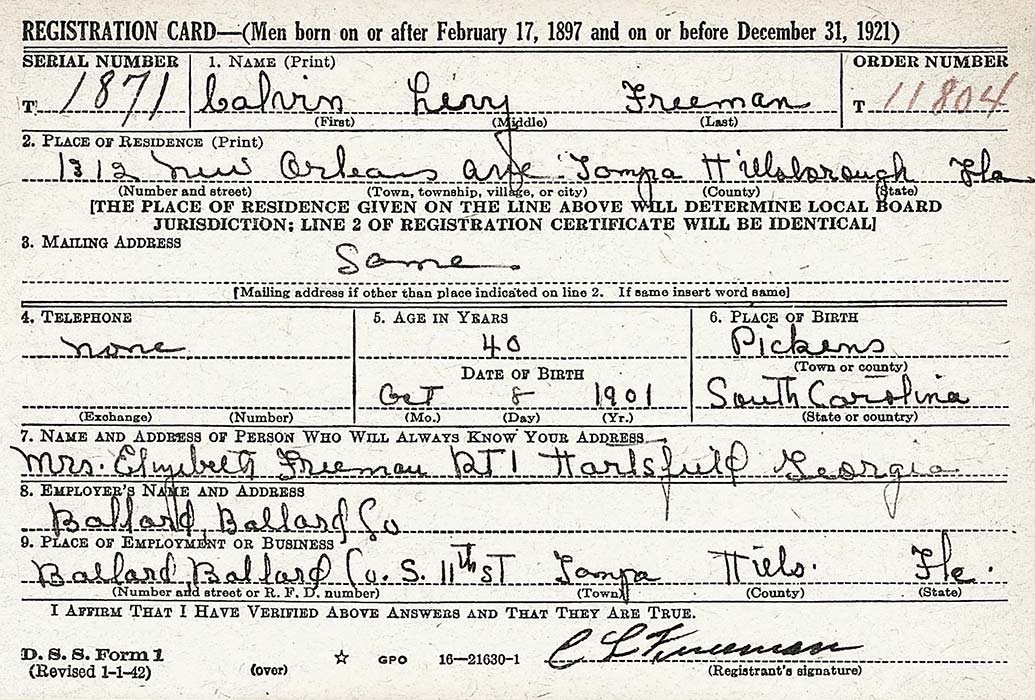 REGISTRATION CARD—(Men born on or after February 17, 1897 and on or before December 31, 1921)
SERIAL NUMBER 1. NAME (Print) ORDER NUMBER
T 1871 Calvin Leroy Freeman T 11804
(First) (Middle) (Last)
2. PLACE OF RESIDENCE (Print)
1312 New Orleans Ave Tampa Hillsborough Fla
(Number and street) (Town, township, village, or city) (County) (State)
[THE PLACE OF RESIDENCE GIVEN ON THE LINE ABOVE WILL DETERMINE LOCAL BOARD
JURISDICTION; LINE 2 OF REGISTRATION CERTIFICATE WILL BE IDENTICAL]
3. MAILING ADDRESS
Same
[Mailing address if other than place indicated on line 2. If same insert word same]
4. TELEPHONE 5. AGE IN YEARS 6. PLACE OF BIRTH
none 40 Pickens
(Town or county)
DATE OF BIRTH
Oct 8 1901 South Carolina
(Exchange) (Number) (Mo.) (Day) (Yr.) (State or country)
7. NAME AND ADDRESS OF PERSON WHO WILL ALWAYS KNOW YOUR ADDRESS
Mrs. Elizebeth Freeman RT 1 Hartsfield Georgia
8. EMPLOYER'S NAME AND ADDRESS
Ballard, Ballard Co
9. PLACE OF EMPLOYMENT OR BUSINESS
Ballard, Ballard Co. S. 11th ST Tampa Hills. Fla.
(Number and street or R. F. D. number) (Town) (County) (State)
I AFFIRM THAT I HAVE VERIFIED ABOVE ANSWERS AND THAT THEY ARE TRUE.
C L Freeman
D. S. S. Form 1
(Revised 1-1-42) (over) ☆ GPO 16—21630-1 (Registrant's signature)